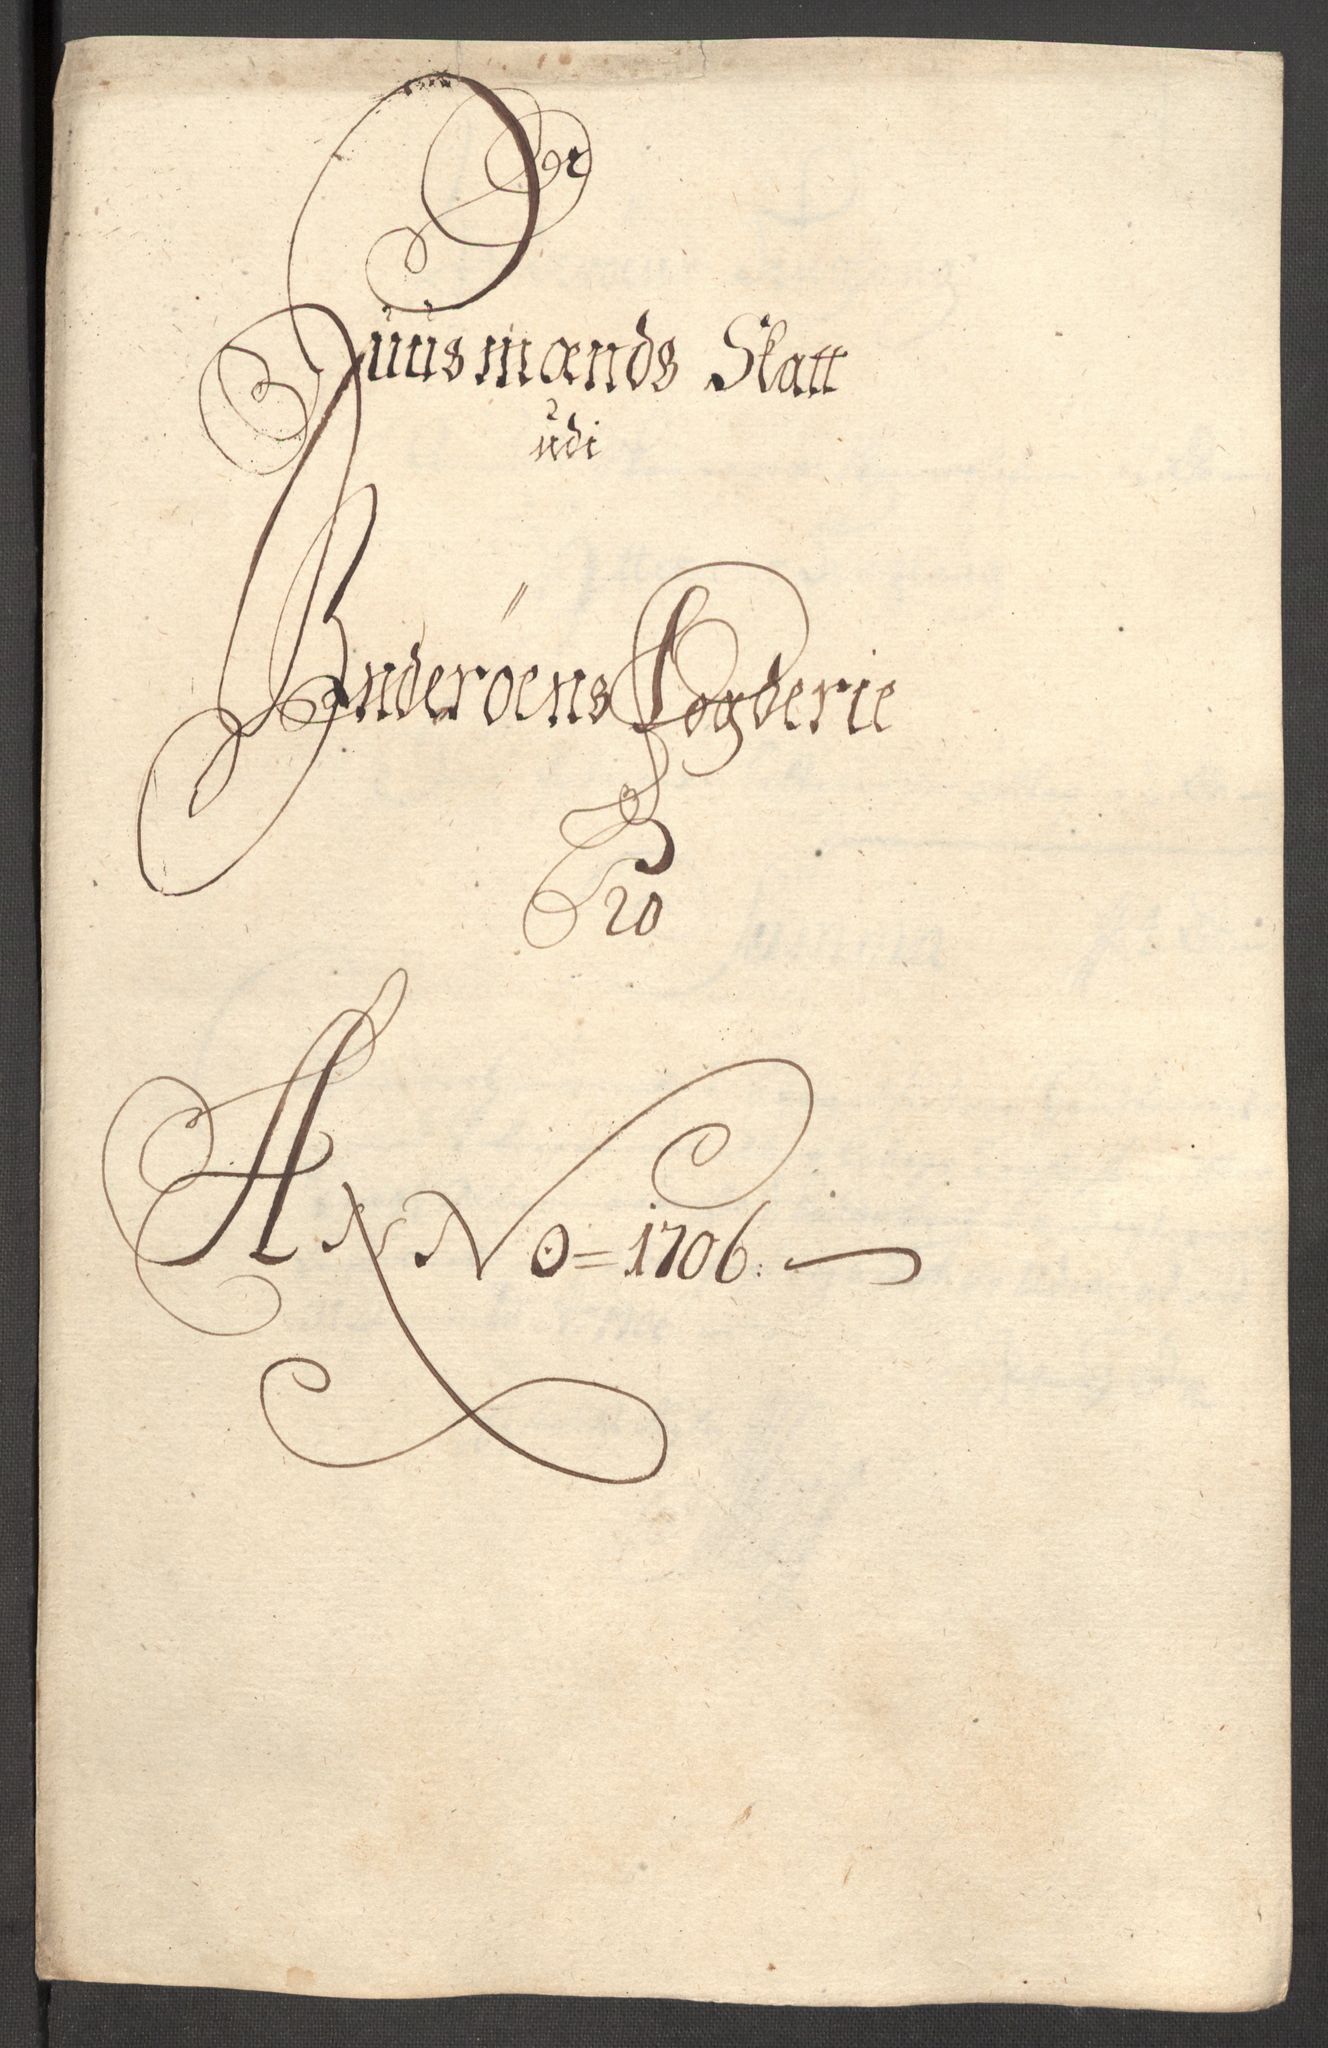 Huusmænds Skatt
udi
Inderöens Fogderie
Pro
ANNo = 1706.